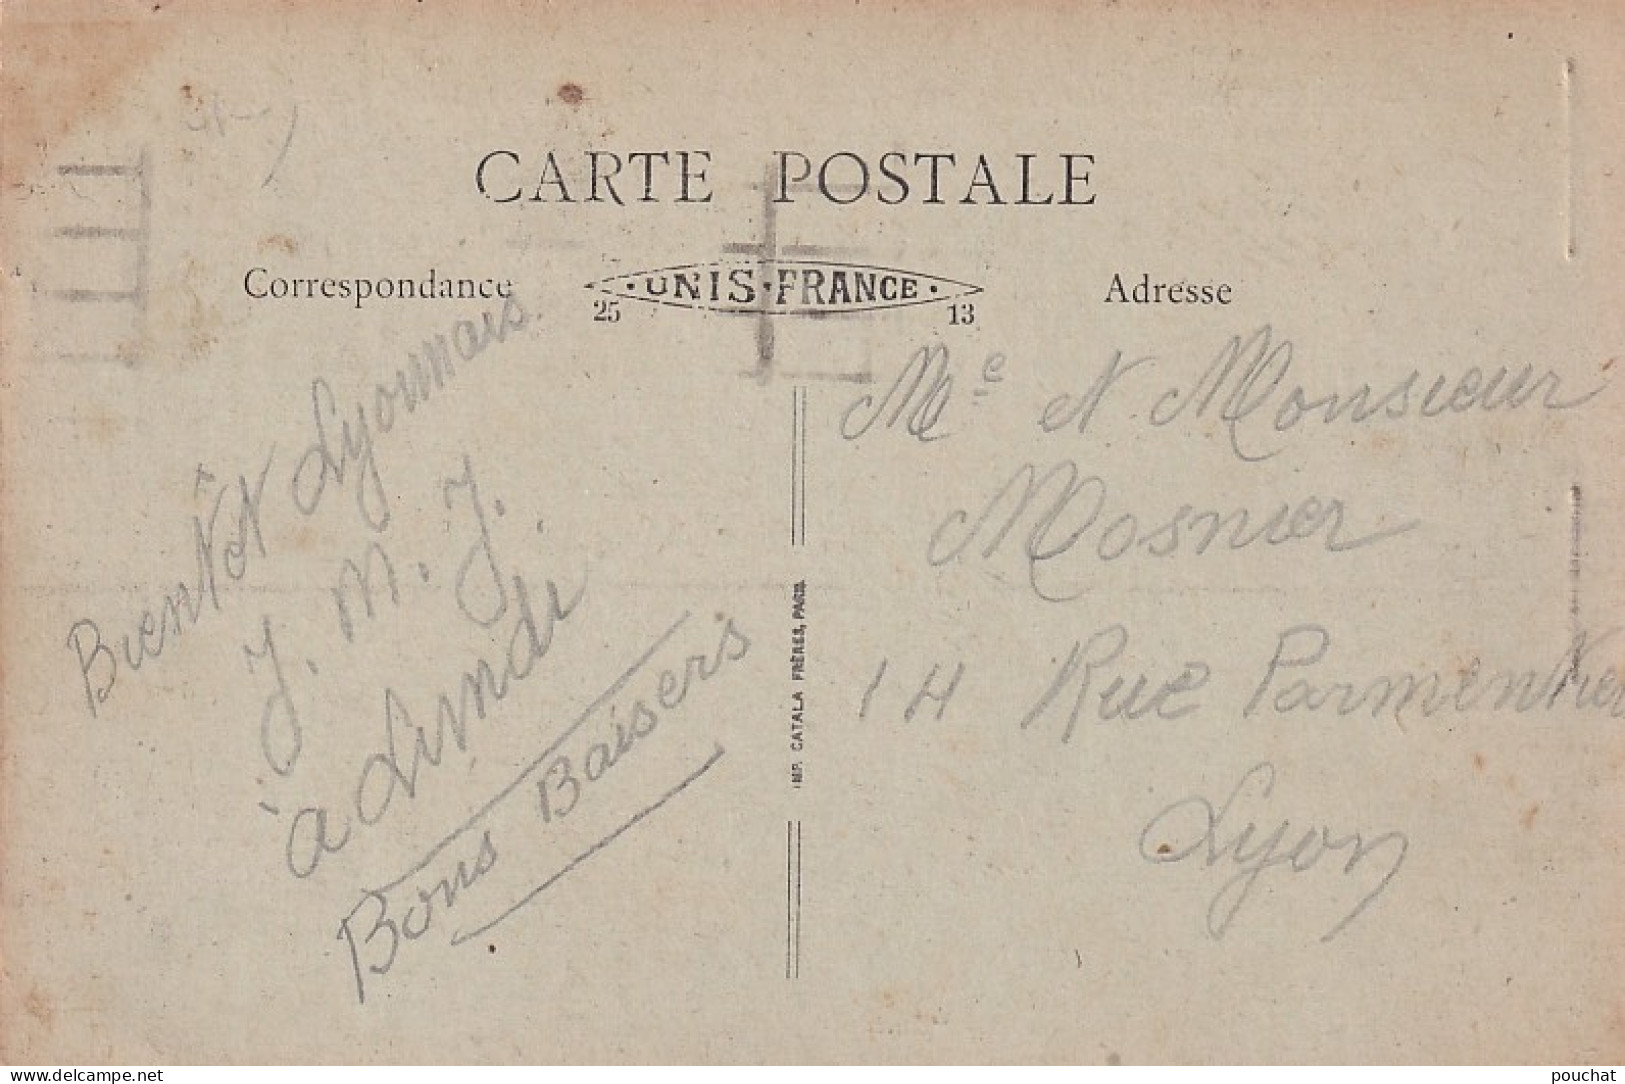 CARTE POSTALE
Correspondance
· UNIS · FRANCE ·
25 13
Adresse
Bientôt Lyonnais.
J. M. J.
à Lundi
Bons Baisers
IMP. CATALA FRÈRES, PARIS
Me et Monsieur
Mosnier
14 Rue Parmentier
Lyon
www.delcampe.net
pouchat